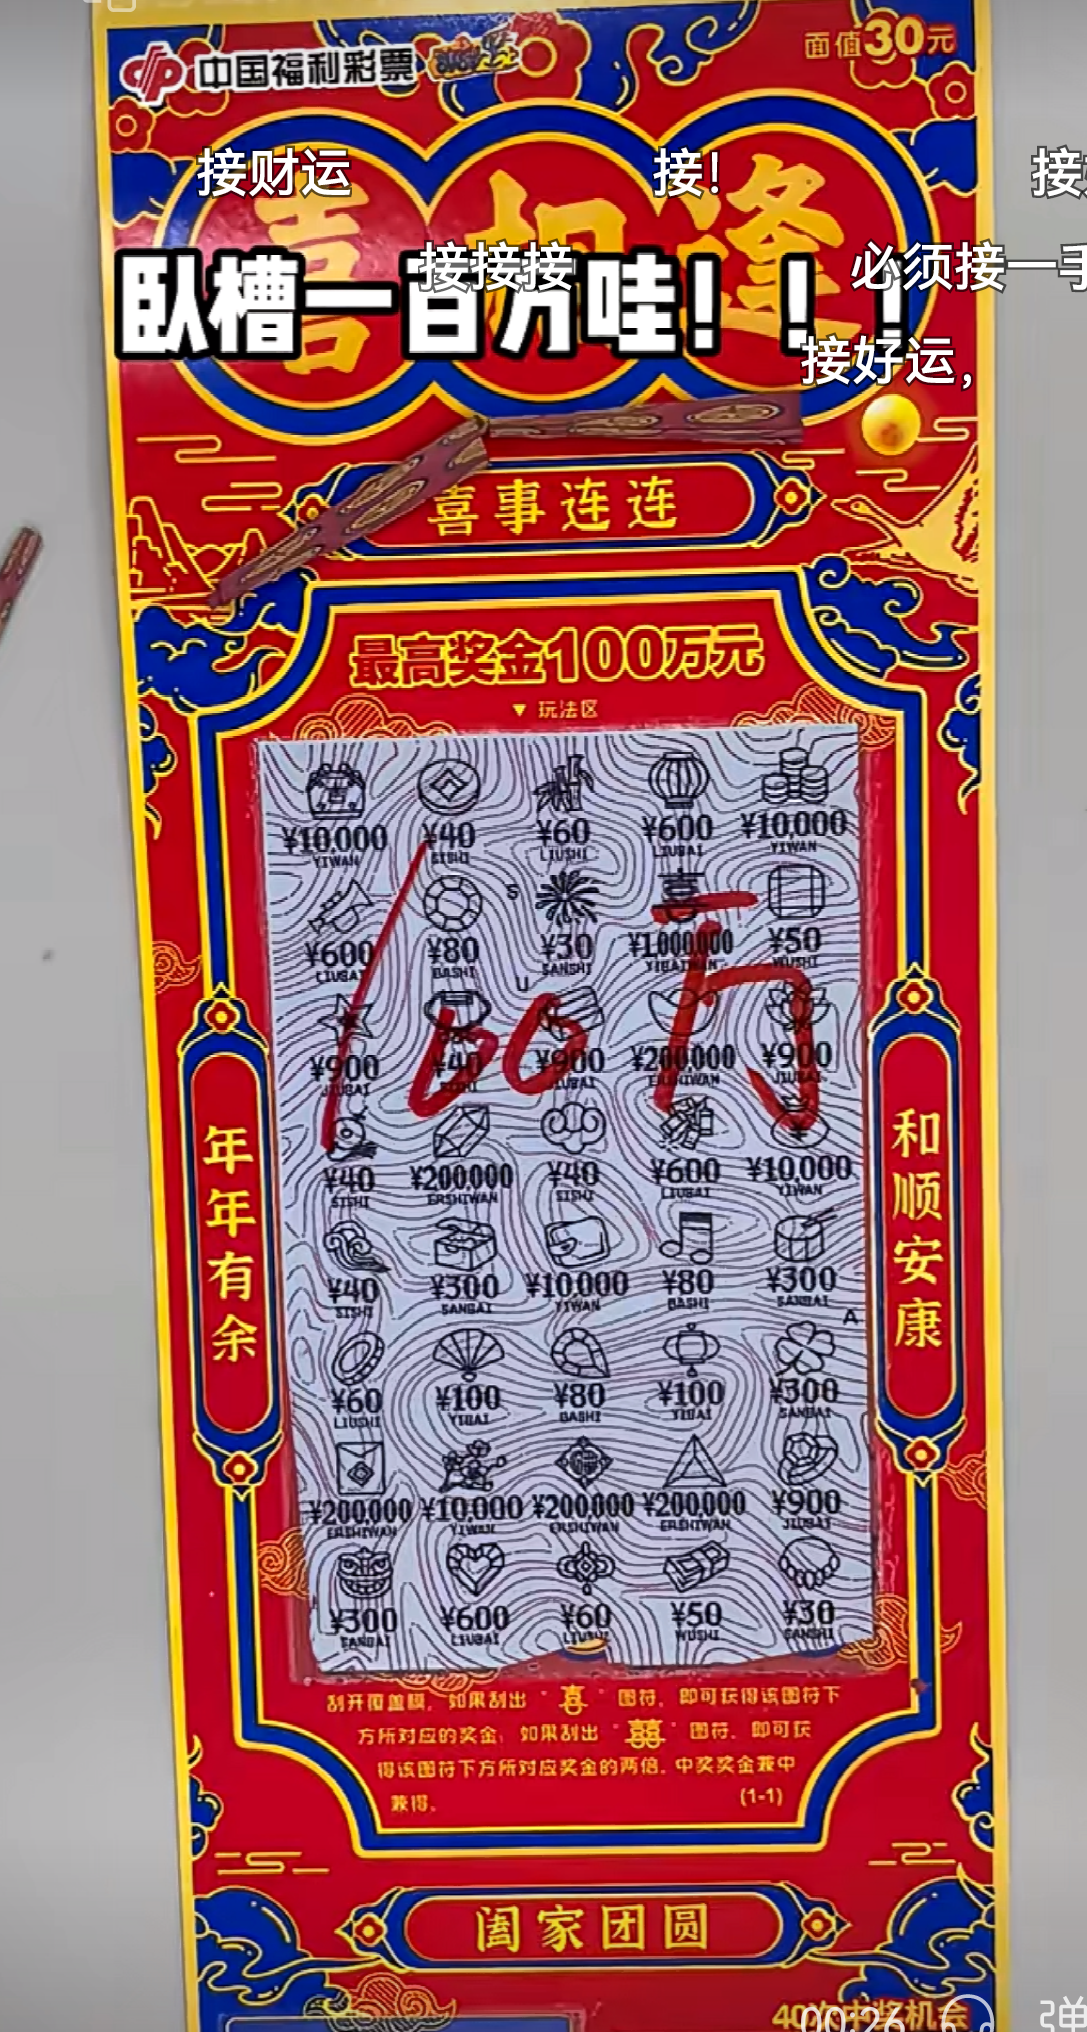 中国福利彩票 刮刮乐
面值30元
接财运 接！
喜相逢
接接接 必须接一手
卧槽一百万哇！！！
接好运，
喜事连连
最高奖金100万元
▼ 玩法区
¥10,000 ¥40 ¥60 ¥600 ¥10,000
YIWAN SISHI LIUSHI LIUBAI YIWAN
S
喜
¥600 ¥80 ¥30 ¥1000000 ¥50
LIUBAI BASHI SANSHI YIBAIWAN WUSHI
U
¥900 ¥40 ¥900 ¥200,000 ¥900
JIUBAI SISHI JIUBAI ERSHIWAN JIUBAI
100万
¥40 ¥200,000 ¥40 ¥600 ¥10,000
SISHI ERSHIWAN SISHI LIUBAI YIWAN
¥40 ¥300 ¥10,000 ¥80 ¥300
SISHI SANBAI YIWAN BASHI SANBAI
A
¥60 ¥100 ¥80 ¥100 ¥300
LIUSHI YIBAI BASHI YIBAI SANBAI
福
¥200,000 ¥10,000 ¥200,000 ¥200,000 ¥900
ERSHIWAN YIWAN ERSHIWAN ERSHIWAN JIUBAI
¥300 ¥600 ¥60 ¥50 ¥30
SANBAI LIUBAI LIUSHI WUSHI SANSHI
年年有余
和顺安康
刮开覆盖膜，如果刮出“喜”图符，即可获得该图符下
方所对应的奖金；如果刮出“囍”图符，即可获
得该图符下方所对应奖金的两倍。中奖奖金兼中
兼得。 (1-1)
阖家团圆
40次中奖机会
00:26 弹